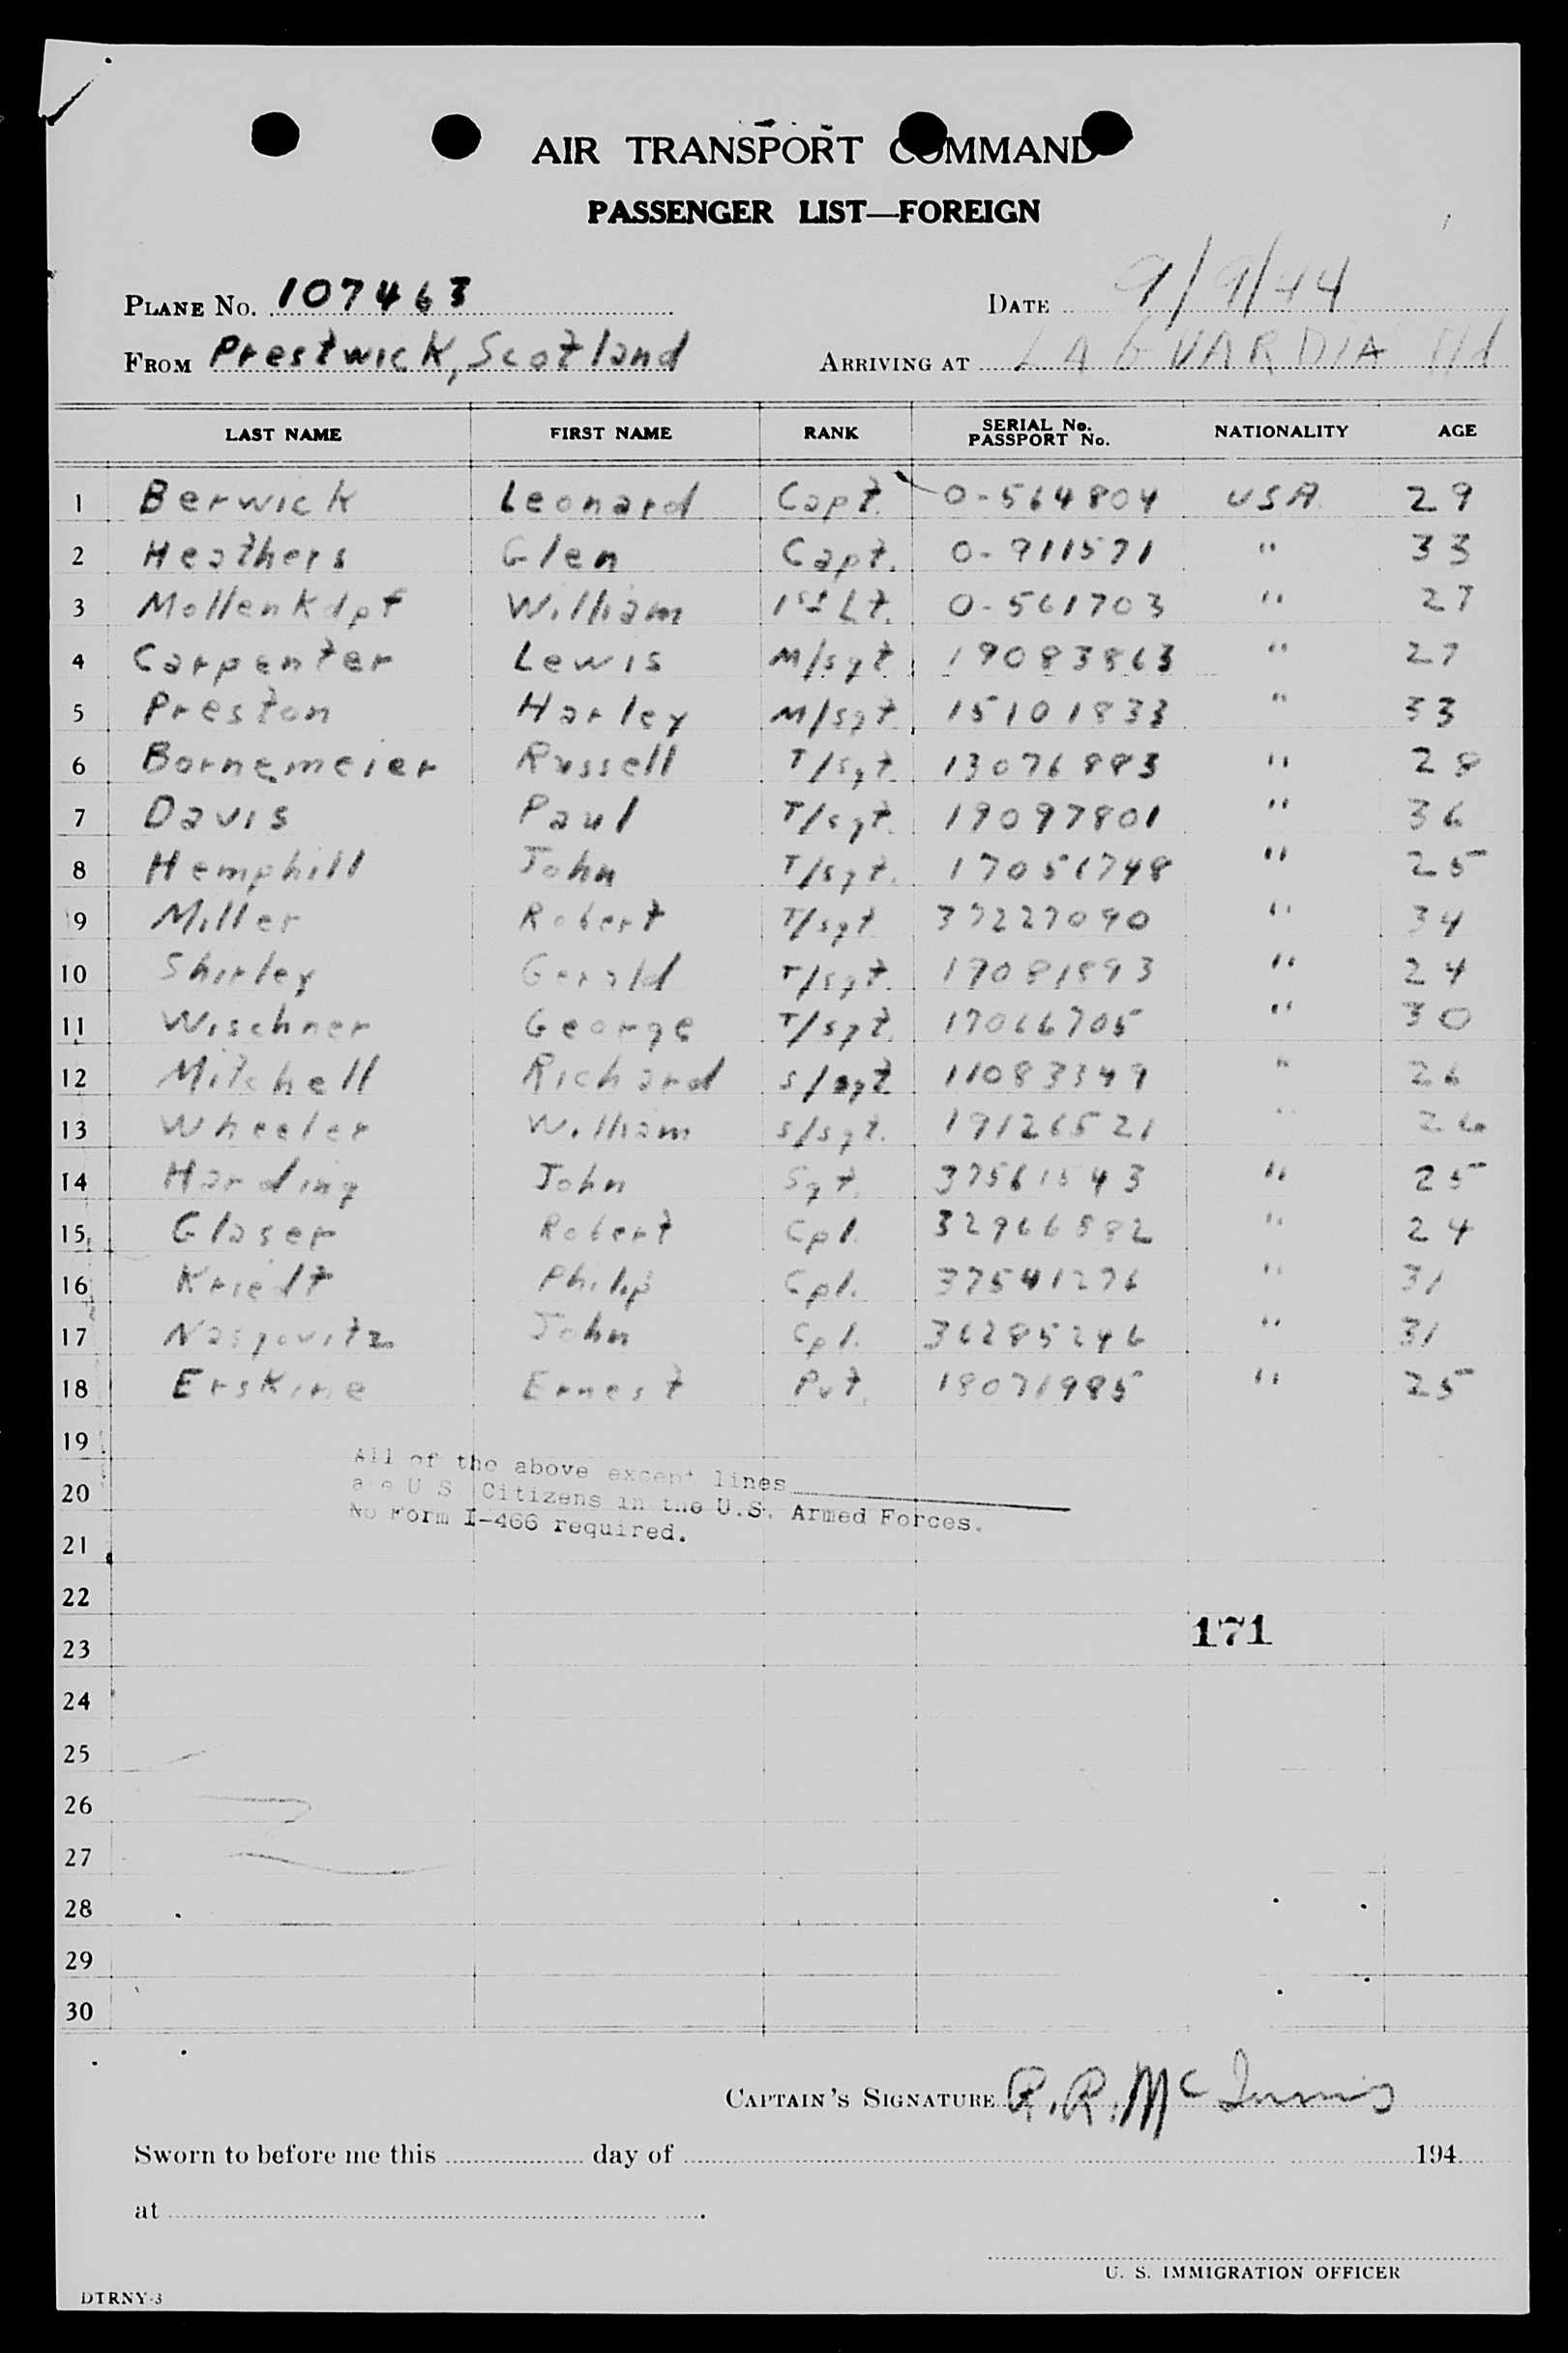 AIR TRANSPORT COMMAND
PASSENGER LIST—FOREIGN
PLANE No. 107463 DATE 9/9/44
FROM Prestwick, Scotland ARRIVING AT LA GUARDIA Fld
LAST NAME FIRST NAME RANK SERIAL No. PASSPORT No. NATIONALITY AGE
1 Berwick Leonard Capt. 0-564804 USA 29
2 Heathers Glen Capt. 0-911571 " 33
3 Mollenkopf William 1st Lt. 0-561703 " 27
4 Carpenter Lewis M/sgt. 19083863 " 27
5 Preston Harley M/sgt. 15101833 " 33
6 Bornemeier Russell T/sgt. 13076883 " 28
7 Davis Paul T/sgt. 19097801 " 36
8 Hemphill John T/sgt. 17051748 " 25
9 Miller Robert T/sgt 37227090 " 34
10 Shirley Gerald T/sgt. 17081893 " 24
11 Wischner George T/sgt. 17066705 " 30
12 Mitchell Richard S/sgt 11083349 " 26
13 Wheeler William S/sgt. 19126521 " 26
14 Harding John Sgt. 37561543 " 25
15 Glaser Robert Cpl. 32966582 " 24
16 Kriedt Philip Cpl. 37541276 " 31
17 Nasgovitz John Cpl. 36285246 " 31
18 Erskine Ernest Pvt. 18071985 " 25
19
All of the above except lines
20
are U S Citizens in the U.S. Armed Forces.
No Form I-466 required.
21
22
171
23
24
25
26
27
28
29
30
CAPTAIN'S SIGNATURE R. R. McInnis
Sworn to before me this day of 194
at
U. S. IMMIGRATION OFFICER
DTRNY-3